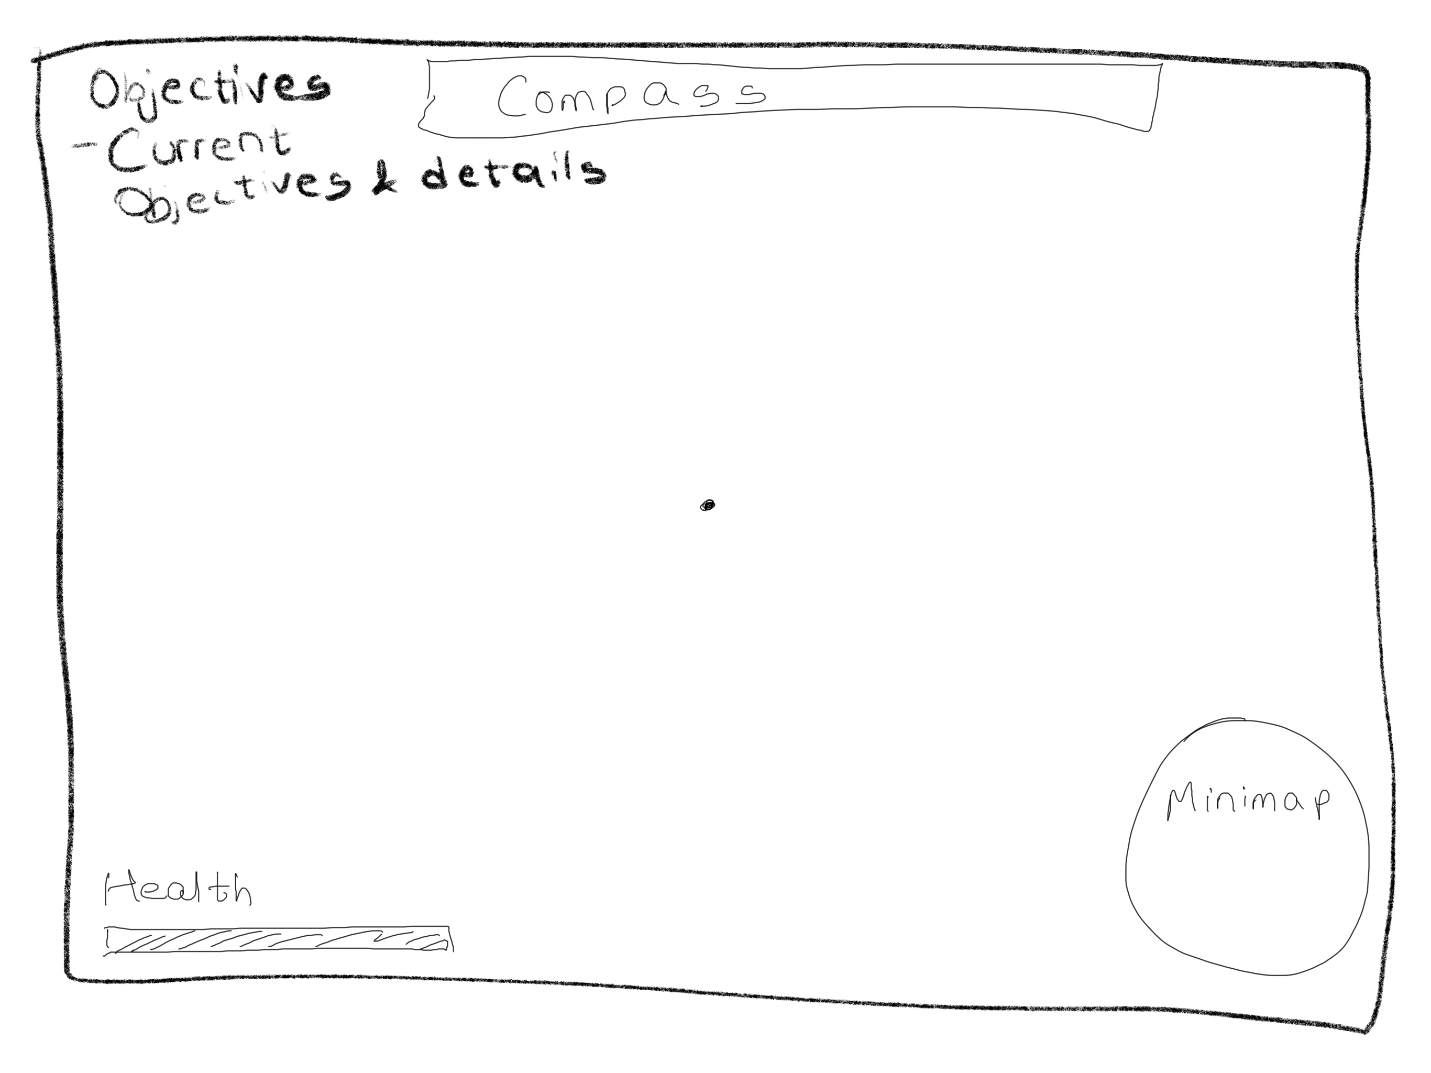 Objectives
- Current
Objectives & details
Compass
Minimap
Health